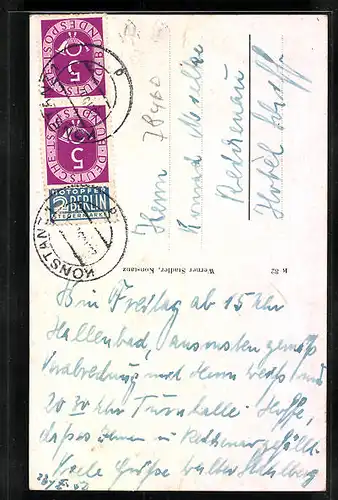 DEUTSCHE BUNDESPOST
5
DEUTSCHE BUNDESPOST
5
NOTOPFER
2 BERLIN
STEUERMARKE
KONSTANZ
Herrn
Konrad
Reichenau
Hotel
K 82 Werner Stadler, Konstanz
Am Freitag ab 15 Uhr
Hallenbad, ansonsten gemäß
Verabredung mit Herrn Weiß und
20 30 Uhr Turnhalle. Hoffe,
dass es Ihnen in Reichenau gefällt.
Viele Grüsse Walter